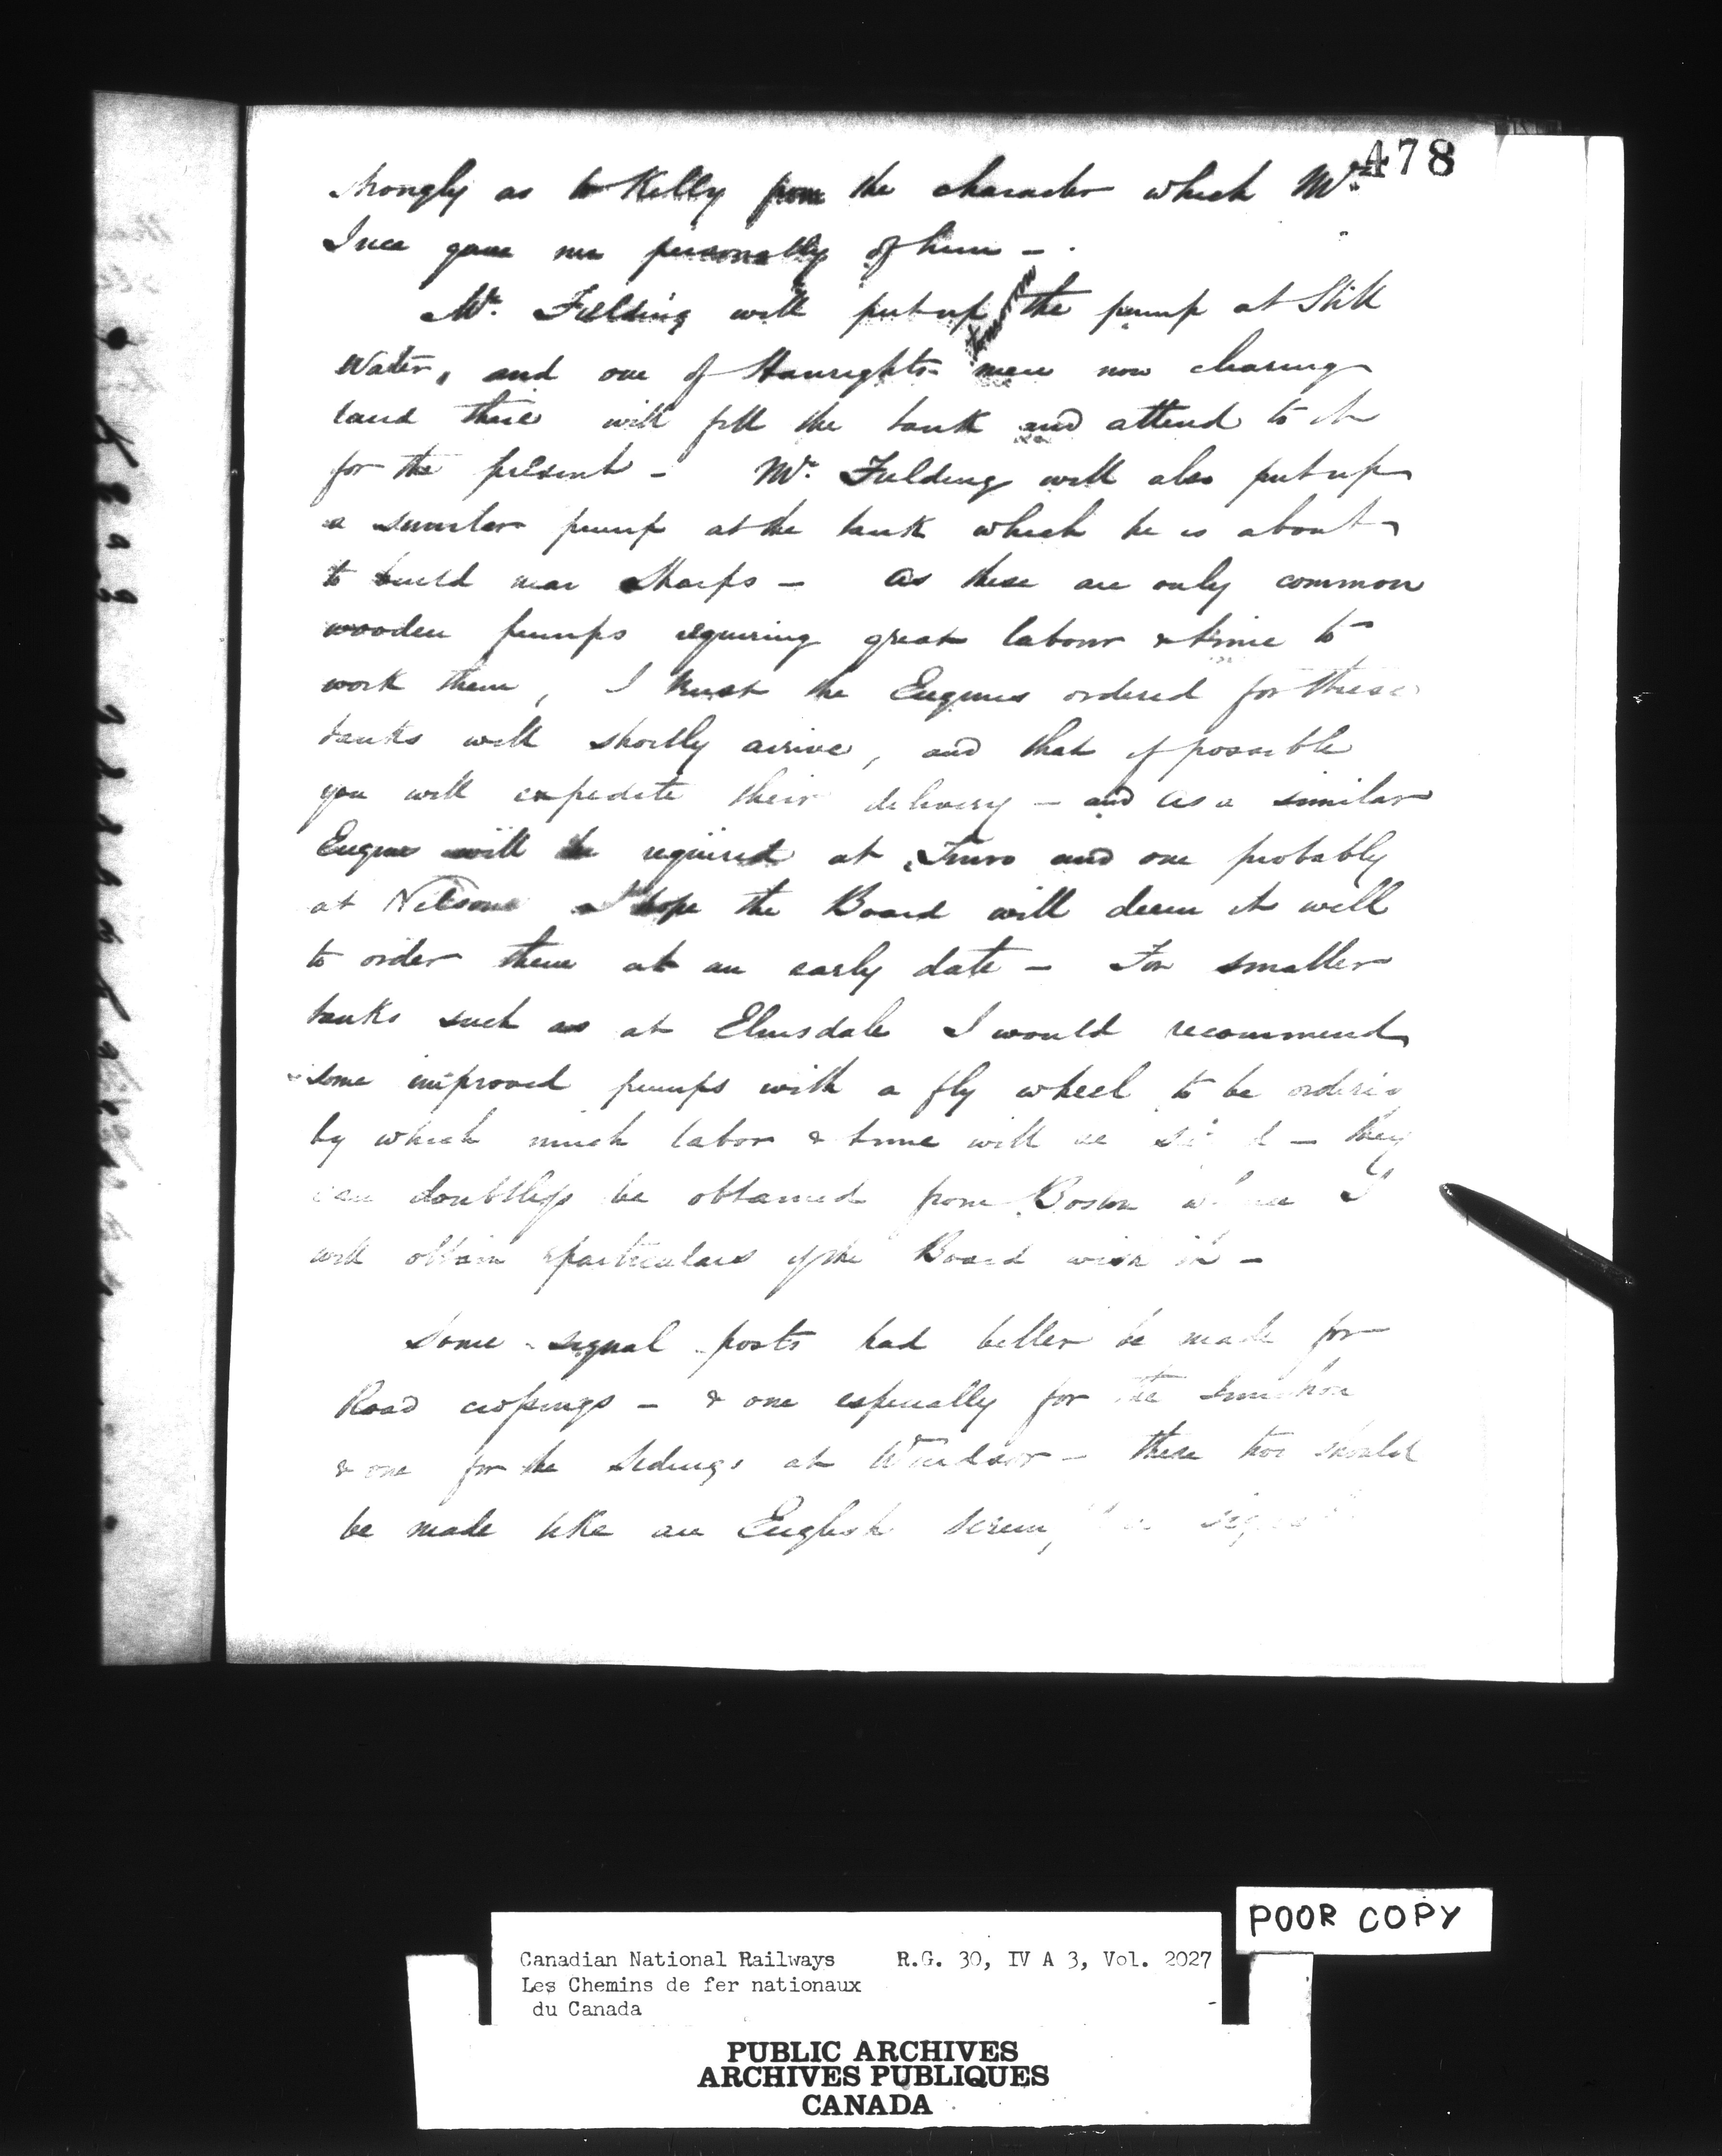 478
strongly as to Kelly from the character which Mr.
Ince gave me personally of him -
Mr. Fielding will put up the pump at Still
Water, and one of Hanrights men now clearing
land there will fill the tank and attend to it
for the present - Mr. Fielding will also put up
a similar pump at the tank which he is about
to build near Sharps - As these are only common
wooden pumps requiring great labour & time to
work them, I trust the Engines ordered for these
tanks will shortly arrive, and that if possible
you will expedite their delivery - and as a similar
Engine will be required at Truro and one probably
at Nelsons I hope the Board will deem it well
to order them at an early date - For smaller
tanks such as at Elmsdale I would recommend
some improved pumps with a fly wheel to be ordered
by which much labor & time will be - they
can doubtless be obtained from Boston where I
will obtain particulars if the Board wish it -
Some signal posts had better be made for
Road crossings - & one especially for the Junction
& one for the Sidings at Windsor - these two should
be made like an English
POOR COPY
Canadian National Railways R.G. 30, IV A 3, Vol. 2027
Les Chemins de fer nationaux
du Canada
PUBLIC ARCHIVES
ARCHIVES PUBLIQUES
CANADA